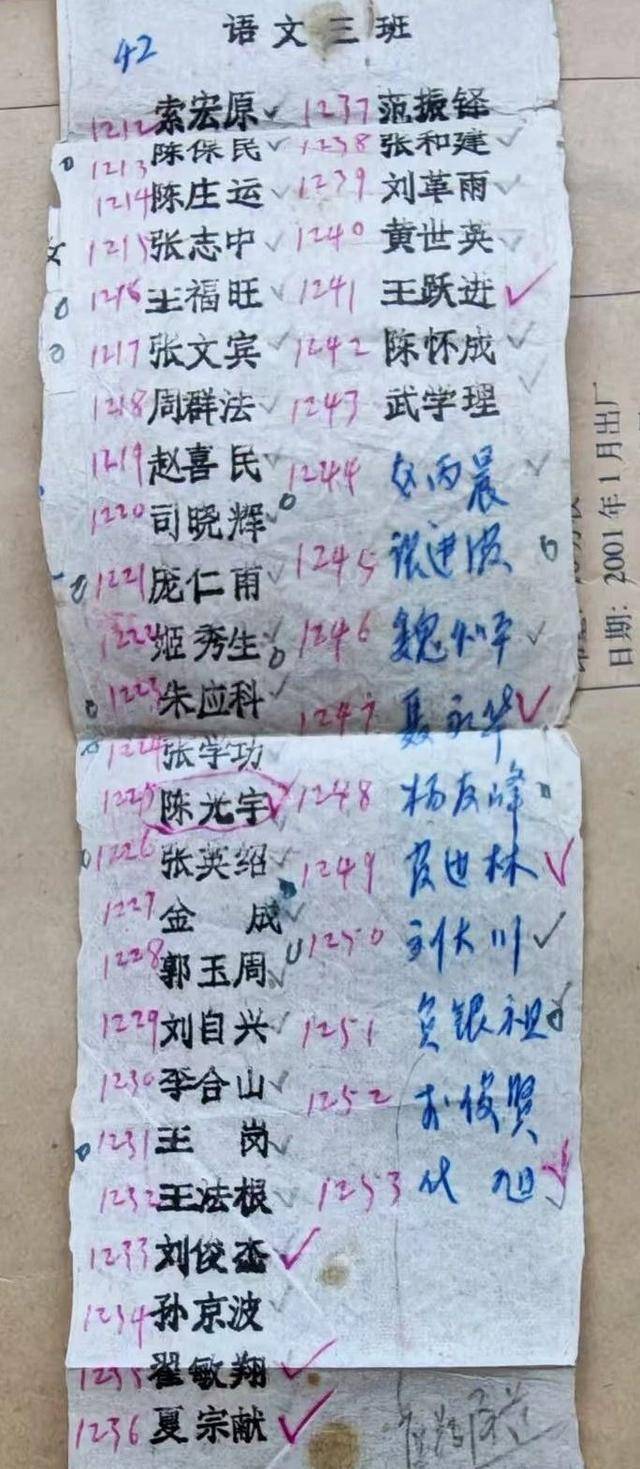 语文三班
42
1212 索宏原
1213 陈保民
1214 陈庄运
1215 张志中
1216 王福旺
1217 张文宾
1218 周群法
1219 赵喜民
1220 司晓辉
1221 庞仁甫
1222 姬秀生
1223 朱应科
1224 张学功
1225 陈光宇
1226 张英绍
1227 金成
1228 郭玉周
1229 刘自兴
1230 李合山
1231 王岗
1232 王法根
1233 刘俊杰
1234 孙京波
1235 翟敏翔
1236 夏宗献
1237 范振铎
1238 张和建
1239 刘革雨
1240 黄世英
1241 王跃进
1242 陈怀成
1243 武学理
1244 赵丙晨
1245 张进
1246 魏和平
1247 聂永华
1248 杨友峰
1249 进林
1250 刘大川
1251 负银祖
1252 俊贤
1253 代旭
日期: 2001 年 1 月出厂